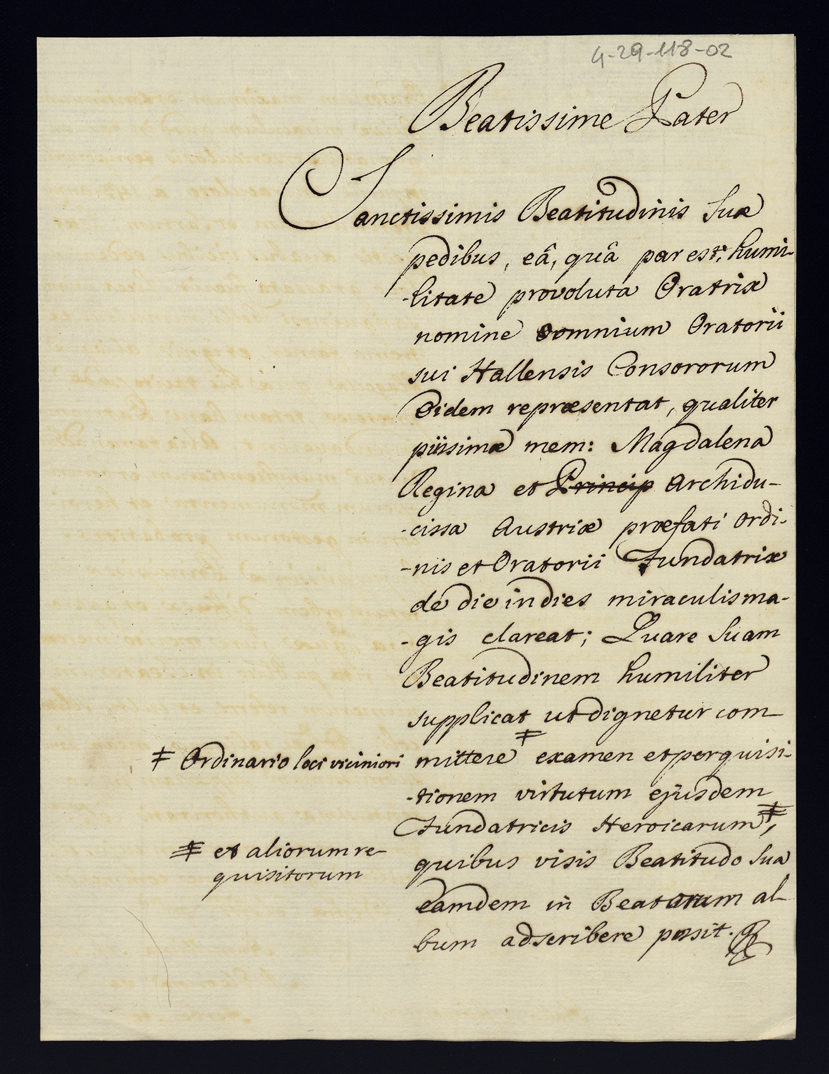 4-29-118-02
Beatissime Pater
Sanctissimis Beatitudinis Suæ
pedibus, eâ, quâ par est, humi-
-litate provoluta Oratrix
nomine omnium Oratorii
sui Hallensis Consororum
Eidem repræsentat, qualiter
piissimæ mem: Magdalena
Regina et Princip Archidu-
-cissa Austriæ præfati Ordi-
-nis et Oratorii Fundatrix
de die in dies miraculis ma-
-gis clareat; Quare Suam
Beatitudinem humiliter
supplicat ut dignetur com
≠ Ordinario loci viciniori
mittere ≠ examen et perquisi-
-tionem virtutum ejusdem
Fundatricis Heroicarum ≢,
≢ et aliorum re-
quisitorum
quibus visis Beatitudo Sua
eamdem in Beatarum al-
bum adscribere possit.